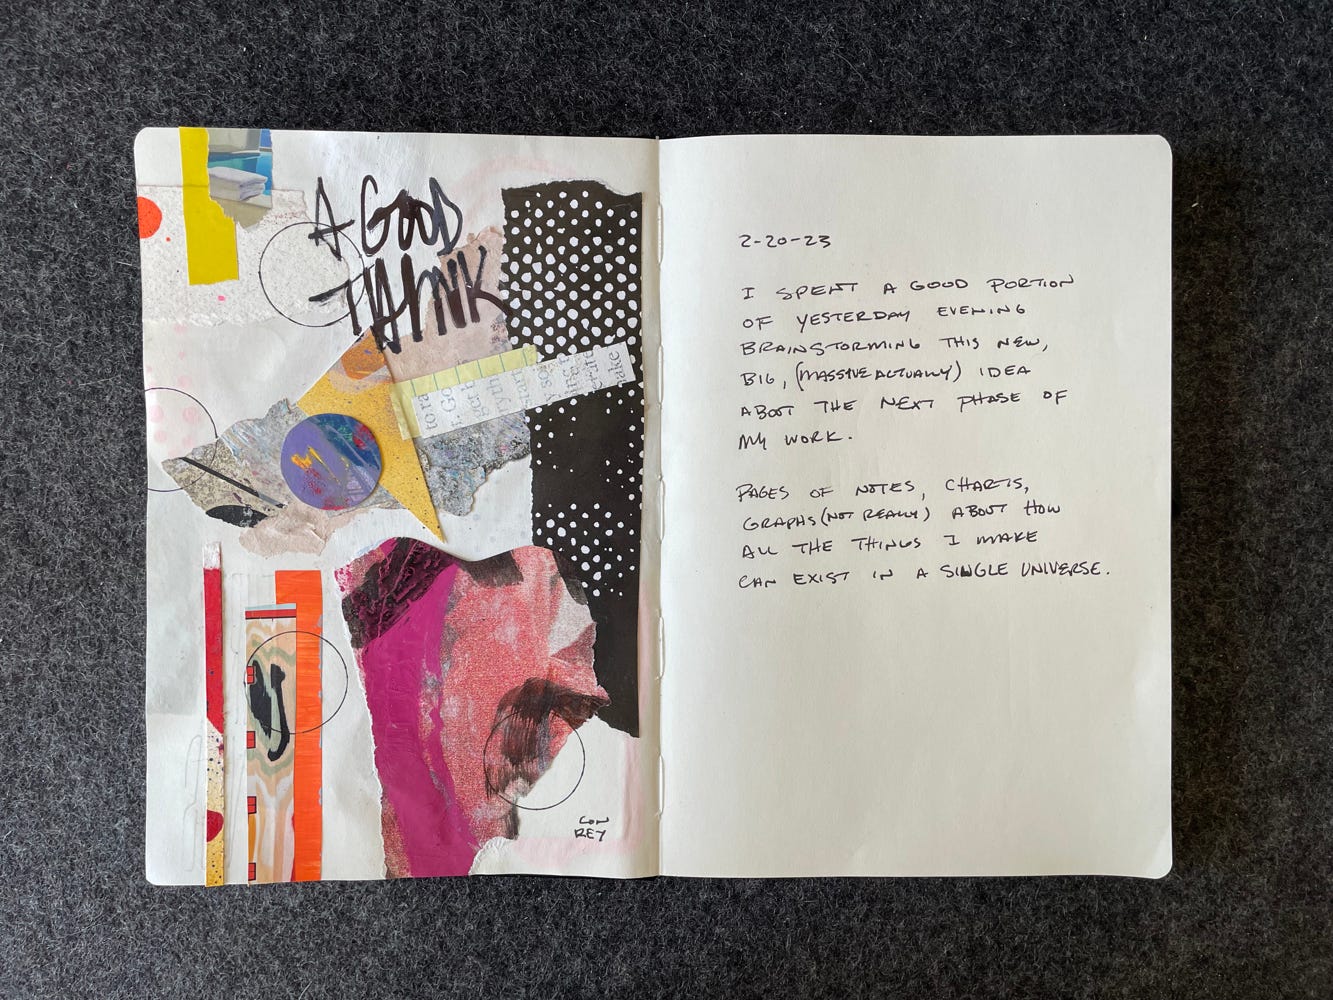 A GOOD
THINK
CON
REY
2-20-23
I SPENT A GOOD PORTION
OF YESTERDAY EVENING
BRAINSTORMING THIS NEW,
BIG, (MASSIVE ACTUALLY) IDEA
ABOUT THE NEXT PHASE OF
MY WORK.
PAGES OF NOTES, CHARTS,
GRAPHS (NOT REALLY) ABOUT HOW
ALL THE THINGS I MAKE
CAN EXIST IN A SINGLE UNIVERSE.